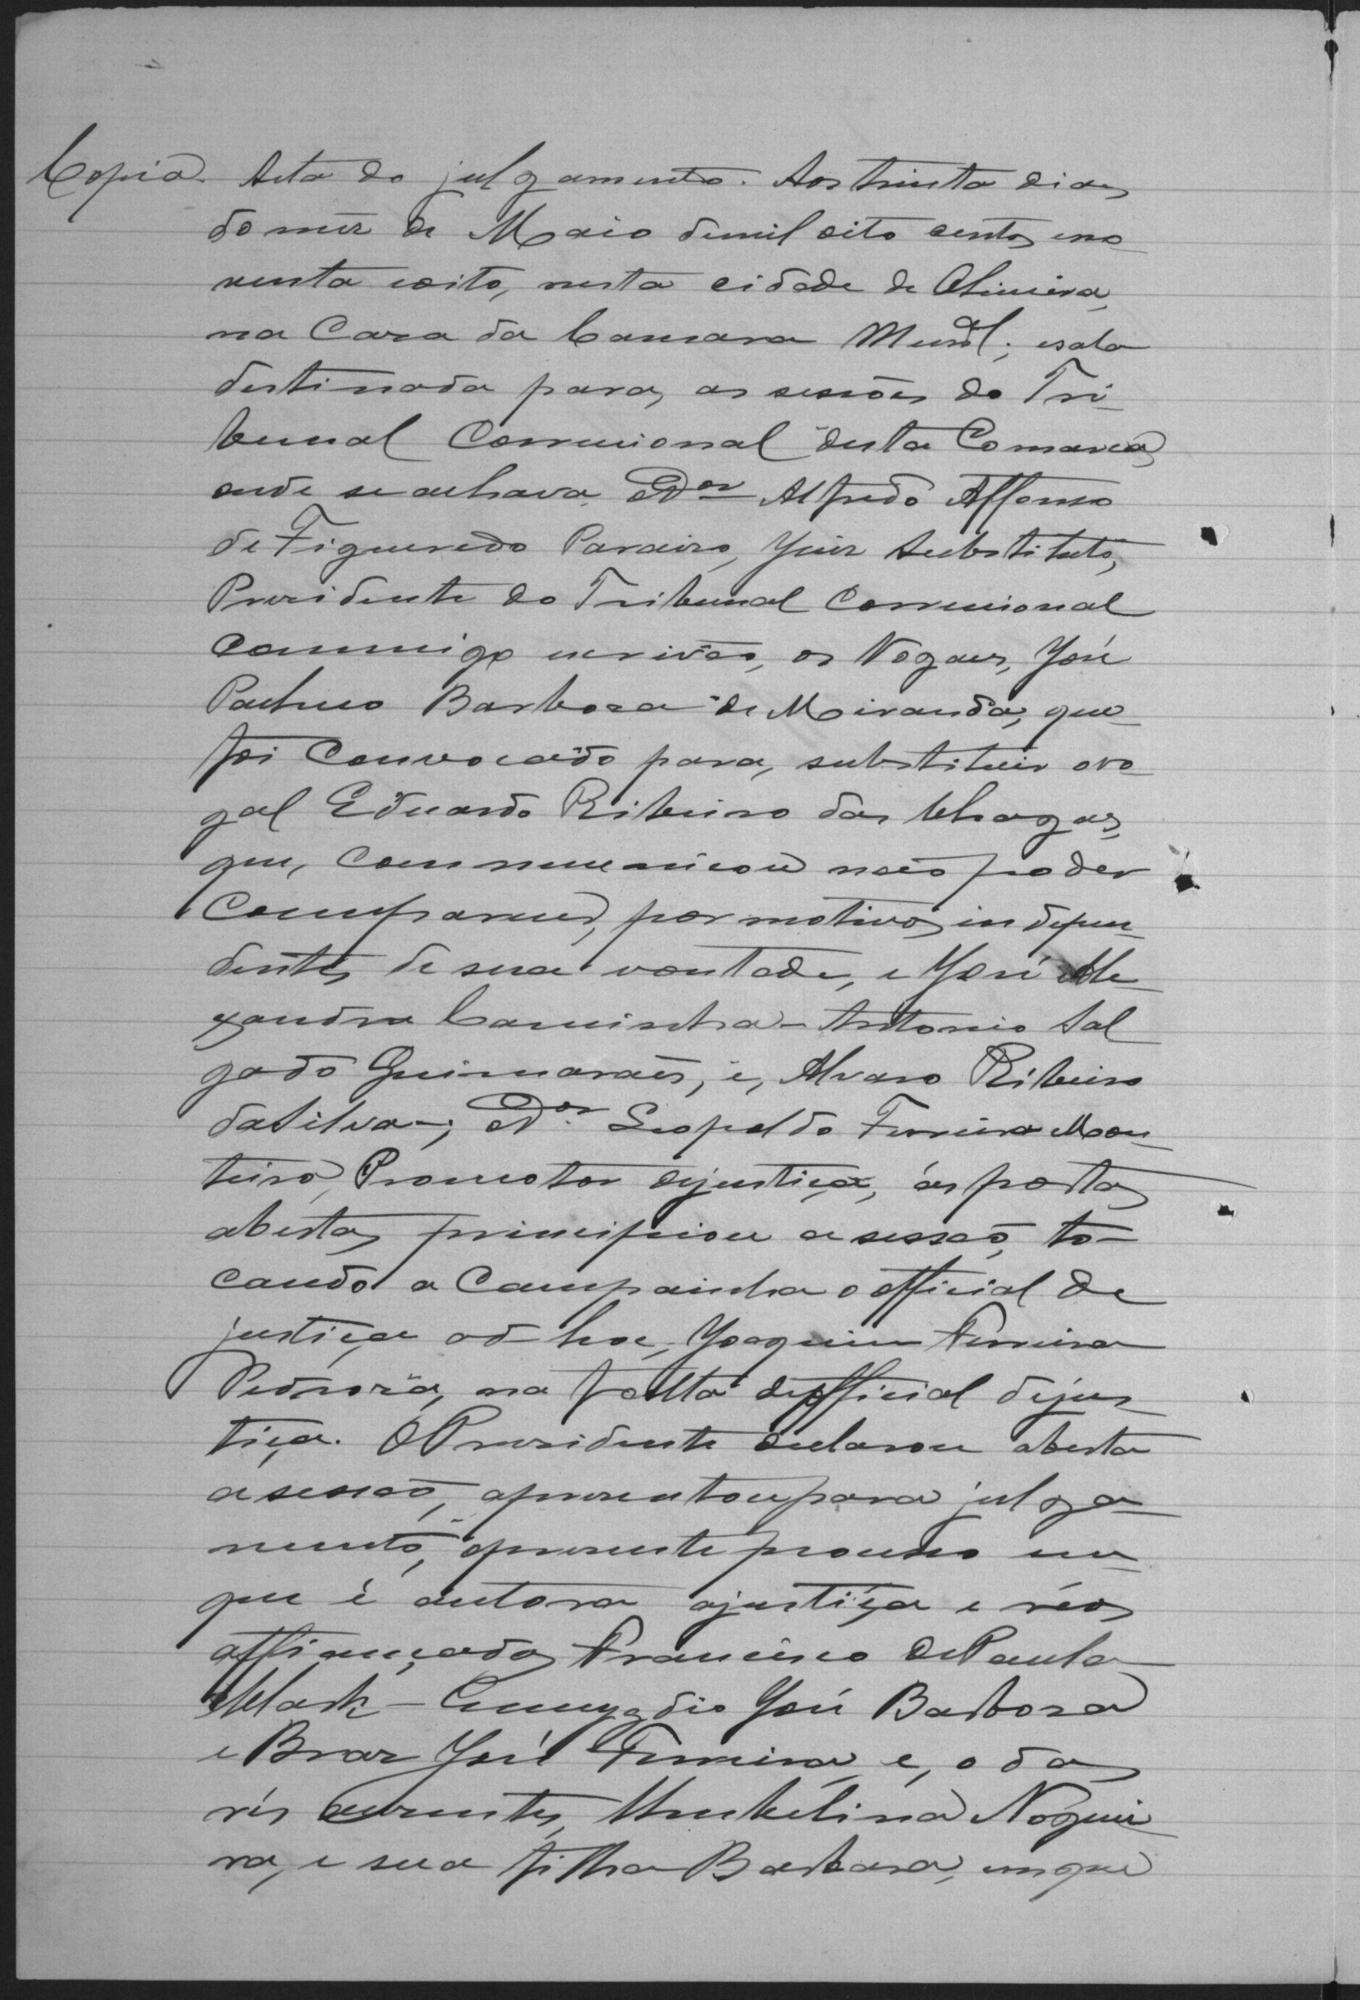 Copia. Acta do julgamento. Aos trinta dias
do mez de Maio de mil oito centos eno
venta eoito, nesta cidade de Oliveira,
na Caza da Camara Munal, esala
destinada para, as sessões do Tri-
bunal Correcional desta Comarca,
onde se achava, oDor Alfredo Affonso
de Figueredo Paraizo, Juiz Substituto,
Prezidente do Tribunal Correcional
commigo escrivão, os Vogaes, José
Pacheco Barboza de Miranda, que
foi Convocado para, substituir ovo
gal Eduardo Ribeiro das Chagas,
que, communicou não poder
Comparecer, por motivos indepen
dentes de sua vontade, e José Ale
xandre Caminha - Antonio Sal
gado Guimarães, e, Alvaro Ribeiro
da Silva -; oDor. Leopoldo Ferreira Mon
teiro, Promotor dejustiça, ás portas
abertas, principiou a sessão, to-
cando a Campainha o official de
justiça ad-hoc, Joaquim Ferreira
Pedroza, na falta deofficial dejus
tiça. O Prezidente declarou aberta
a sessão, apresentou para julga-
mento, opresente processo em
que é autora ajustiça e réos
affiançados Francisco de Paula
- Emygdio José Barboza
e Braz José Ferreira, e, o das
rés auzentes, Noguei
ra, e sua filha Barbara, emque